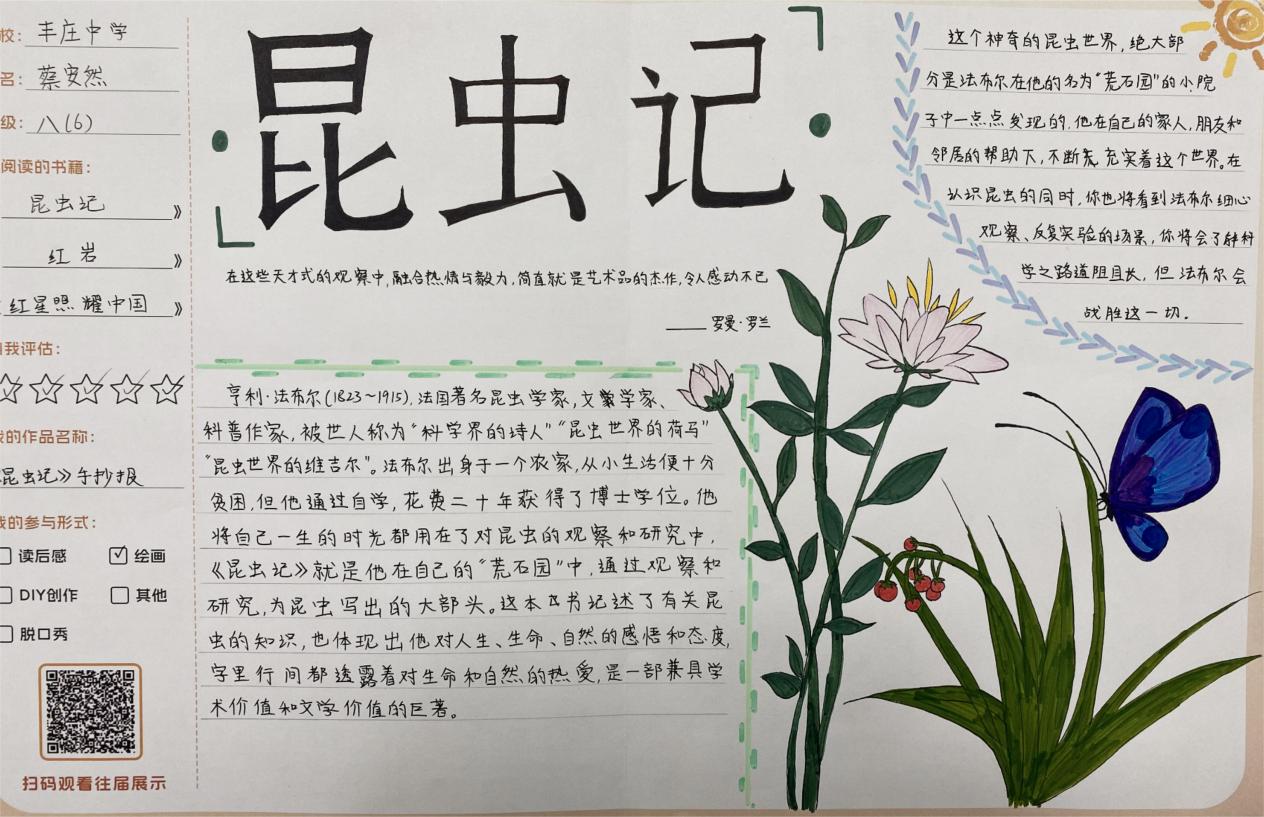 校：丰庄中学
名：蔡安然
级：八(6)
阅读的书籍：
昆虫记》
红岩》
红星照耀中国》
自我评估：
我的作品名称：
昆虫记》手抄报
我的参与形式：
读后感 绘画
DIY创作 其他
脱口秀
扫码观看往届展示
昆虫记
在这些天才式的观察中,融合热情与毅力,简直就是艺术品的杰作,令人感动不已
——罗曼·罗兰
亨利·法布尔(1823~1915),法国著名昆虫学家,文学家、
科普作家,被世人称为“科学界的诗人”“昆虫世界的荷马”
“昆虫世界的维吉尔”。法布尔出身于一个农家,从小生活便十分
贫困,但他通过自学,花费二十年获得了博士学位。他
将自己一生的时光都用在了对昆虫的观察和研究中,
《昆虫记》就是他在自己的“荒石园”中,通过观察和
研究,为昆虫写出的大部头。这本书记述了有关昆
虫的知识,也体现出他对人生、生命、自然的感悟和态度,
字里行间都透露着对生命和自然的热爱,是一部兼具学
术价值和文学价值的巨著。
这个神奇的昆虫世界,绝大部
分是法布尔在他的名为“荒石园”的小院
子中一点点发现的,他在自己的家人,朋友和
邻居的帮助下,不断充实着这个世界。在
认识昆虫的同时,你也将看到法布尔细心
观察、反复实验的场景,你将会了解科
学之路道阻且长,但法布尔会
战胜这一切.